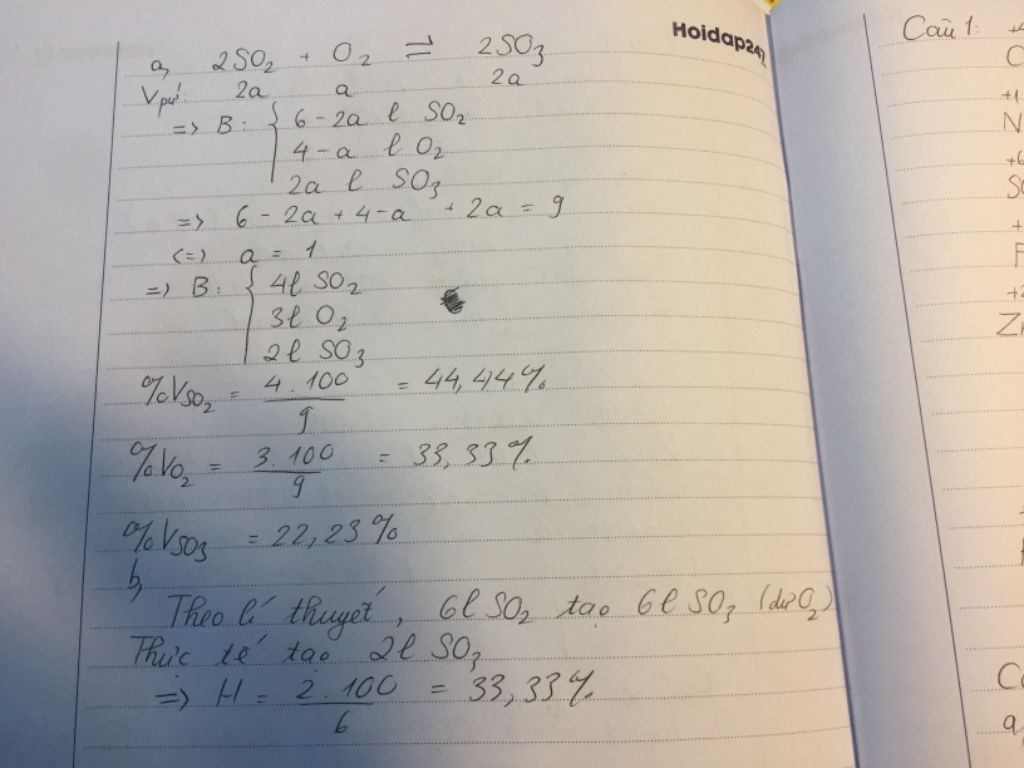 Hoidap247
a, 2SO₂ + O₂ ⇌ 2SO₃
Vpứ: 2a a 2a
=> B: { 6 - 2a l SO₂
4 - a l O₂
2a l SO₃
=> 6 - 2a + 4 - a + 2a = 9
(=) a = 1
=> B: { 4l SO₂
3l O₂
2l SO₃
%VSO₂ = 4.100/9 = 44,44%
%VO₂ = 3.100/9 = 33,33%
%VSO₃ = 22,23%
b,
Theo lí thuyết, 6l SO₂ tạo 6l SO₃ (dư O₂)
Thực tế tạo 2l SO₃
=> H = 2.100/6 = 33,33%
Câu 1:
+1
N
+6
+2